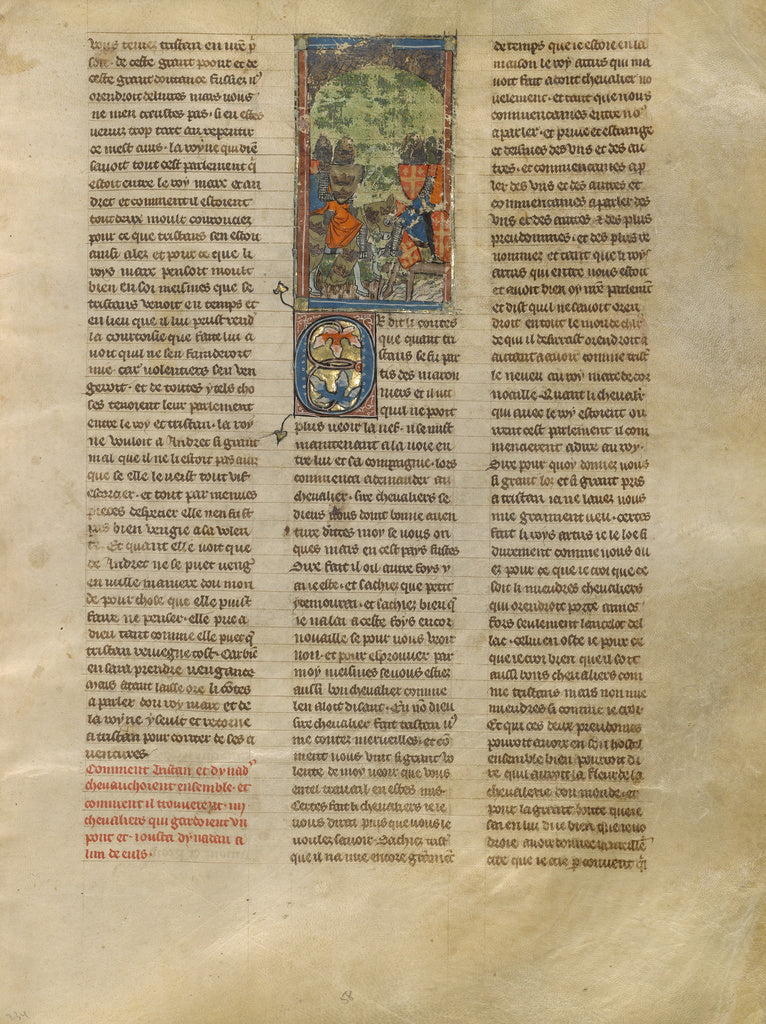 vous tenez tristan en vre p
son. de ceste grant poont et de
ceste grant doutance fussiez
orendroit delivrez mais vous
ne men creustes pas. si en estes
venuz trop tart au repentir
ce mest auis. la royne qui bien
sauoit tout cest parlement q
estoit entre le roy marc et an
dret et comment il estoient
tout deux moult courouciez
pour ce que tristans sen estoit
ainsi alez et pour ce que li
roys marc pensoit moult
bien en soi meismes que se
tristans venoit en temps et
en lieu que il lui peust rend
la courtoisie que faite lui a
voit quil ne sen faindroit
mie. car volentiers sen ven
geroit. et de toutes ytels cho
ses tenoient leur parlement
entre le roy et tristan. la roy
ne vouloit a Andret si grant
mal que il ne li estoit pas auis
que se elle le veist tout vif
escorcier. et tout par menues
pieces depecier elle nen fust
pas bien vengie a sa volen
te. Et quant elle voit que
de Andret ne se puet veng
en nulle maniere dou mon
de pour chose que elle puist
faire ne penser. elle prie a
dieu tant comme elle puet q
tristan reviegne tost. Car bie
en sara prendre vengance
Mais atant laisse ore li cotes
a parler dou roy marc et de
la royne yseult et retorne
a tristan pour conter de ses a
uentures.
Comment Tristan et dynad
chevauchoient ensemble. et
comment il trouverent. iiij
chevaliers qui gardoient vn
pont et. iousta dynadan a
lun de euls.
E dit li contes
que quant tri
stans se fu par
tis des maron
niers et il vit
quil ne pooit
plus veoir la nef. il se mist
maintenant a la voie en
tre lui et sa compaignie. lors
commenca a demander au
chevalier. sire chevaliers se
dieus vous doint bonne auen
ture dittes moy se vous on
ques mais en cest pays fustes
Sire fait il oil autre foys y
ai ie este. et sachiez que petit
y demourrai. et sachiez bien q
ie ni alai a ceste foys encor
nouaille se pour vous veoir
non. et pour esprouver par
moy meismes se vous estiez
aussi bon chevalier comme
len aloit disant. En no dieu
sire chevalier fait tristan
me contez merveilles. et co
ment vous vint si grant vo
lente de moy veoir que vous
en tel travail en estes mis.
Certes fait li chevaliers ie le
vous dirai plus que vous le
voulez savoir. Sachiez trist
que il na mie encore gramet
de temps que ie estoie en la
maison le roy artus qui ma
uoit fait acoint chevalier no
velement. et tant que nous
commencames entre no
a parler. et prive et estrange
et deismes des vns et des au
tres. et commencames a p
ler des vns et des autres et
commencames a parler des
vns et des autres. et des plus
preudommes. et des plus re
nommez et tant que le roy
artus qui entre nous estoit
et avoit bien oy nre parlement
et dist quil ne savoit oren
droit en tout le monde che
de qui il desirast orendroit a
autant a avoir comme trist
le neveu au roy marc de cor
noaille. Quant li chevalr
qui avec le roy estoient ou
virent cest parlement il com
mencerent a dire au roy.
Sire pour quoy donnez vous
si grant los et si grant pris
a tristan ia ne lavez vous
mie granment veu. certes
fait li roys artus ie le loe si
durement comme vous ou
ez pour ce que ie croi que ce
soit li mieudres chevaliers
qui orendroit porte armes
fors seulement lancelot del
lac. celui en oste ie pour ce
que ie croi bien que il soit
aussi bons chevaliers com
me tristans mais non mie
mieudres si comme ie croi.
Et qui ces deux preudomes
pourroit avoir en son hostel
ensemble bien pourroit di
re quil auroit la fleur de la
chevalerie dou monde. et
pour la grant bonte que ie
sai en lui di ie bien que ie vou
droie avoir donnee la meilleur
cite que ie aie p convent q
58